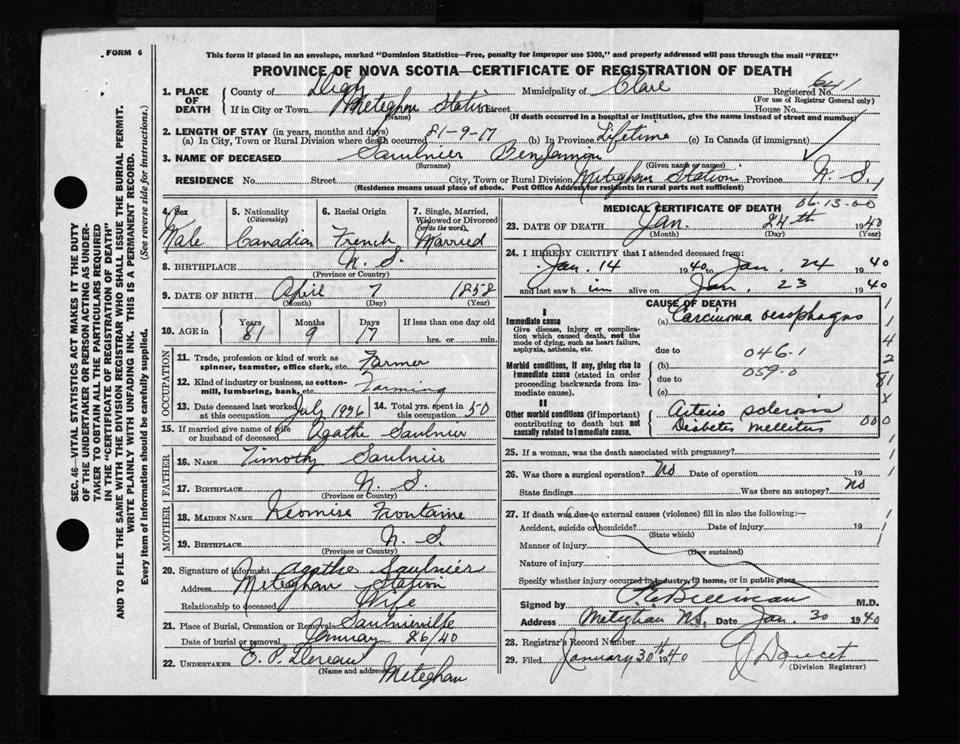 FORM 6
This form if placed in an envelope, marked "Dominion Statistics—Free, penalty for improper use $300," and properly addressed will pass through the mail "FREE"
PROVINCE OF NOVA SCOTIA—CERTIFICATE OF REGISTRATION OF DEATH
1. PLACE OF DEATH
County of Digby Municipality of Clare Registered No. 641
(For use of Registrar General only)
If in City or Town Meteghan Station Street House No.
(Name) (If death occurred in a hospital or institution, give the name instead of street and number)
2. LENGTH OF STAY (in years, months and days)
(a) In City, Town or Rural Division where death occurred 81-9-17 (b) In Province Lifetime (c) In Canada (if immigrant)
3. NAME OF DECEASED Saulnier Benjamin
(Surname) (Given name or names)
RESIDENCE No. Street City, Town or Rural Division Meteghan Station Province N. S.
(Residence means usual place of abode. Post Office Address for residents in rural parts not sufficient)
4. Sex Male
5. Nationality (Citizenship) Canadian
6. Racial Origin French
7. Single, Married, Widowed or Divorced (write the word) Married
8. BIRTHPLACE N. S.
(Province or Country)
9. DATE OF BIRTH April 7 1858
(Month) (Day) (Year)
10. AGE in Years Months Days If less than one day old
81 9 17 hrs. or min.
OCCUPATION
11. Trade, profession or kind of work as spinner, teamster, office clerk, etc. Farmer
12. Kind of industry or business, as cotton-mill, lumbering, bank, etc. Farming
13. Date deceased last worked at this occupation July 1936
14. Total yrs. spent in this occupation 50
15. If married give name of wife or husband of deceased Agathe Saulnier
FATHER
16. NAME Timothy Saulnier
17. BIRTHPLACE N. S.
(Province or Country)
MOTHER
18. MAIDEN NAME
19. BIRTHPLACE N. S.
(Province or Country)
20. Signature of informant Agathe Saulnier
Address Meteghan Station
Relationship to deceased Wife
21. Place of Burial, Cremation or Removal Saulnierville
Date of burial or removal January 26/40
22. UNDERTAKER
(Name and address) Meteghan
MEDICAL CERTIFICATE OF DEATH 06-13-00
23. DATE OF DEATH Jan. 24th 1940
(Month) (Day) (Year)
24. I HEREBY CERTIFY that I attended deceased from:
Jan. 14 1940 to Jan. 24 1940
and last saw him alive on Jan. 23 1940
CAUSE OF DEATH
I
Immediate cause (a) Carcinoma oesophagus
Give disease, injury or complication which caused death, not the mode of dying, such as heart failure, asphyxia, asthenia, etc.
due to 046-1
Morbid conditions, if any, giving rise to immediate cause (stated in order proceeding backwards from immediate cause).
(b) 059-0
due to
(c)
II
Other morbid conditions (if important) contributing to death but not causally related to immediate cause.
Arterio sclerosis
Diabetes mellitus 000
25. If a woman, was the death associated with pregnancy?
26. Was there a surgical operation? No Date of operation 19
State findings Was there an autopsy? No
27. If death was due to external causes (violence) fill in also the following:—
Accident, suicide or homicide? Date of injury 19
(State which)
Manner of injury
(How sustained)
Nature of injury
Specify whether injury occurred in industry, in home, or in public place
Signed by M.D.
Address Meteghan N.S. Date Jan. 30 1940
28. Registrar's Record Number
29. Filed January 30th 1940 J Doucet
(Division Registrar)
SEC. 46—VITAL STATISTICS ACT MAKES IT THE DUTY
OF THE UNDERTAKER OR PERSON ACTING AS UNDER-
TAKER TO OBTAIN ALL THE PARTICULARS REQUIRED
IN THE "CERTIFICATE OF REGISTRATION OF DEATH"
AND TO FILE THE SAME WITH THE DIVISION REGISTRAR WHO SHALL ISSUE THE BURIAL PERMIT.
WRITE PLAINLY WITH UNFADING INK. THIS IS A PERMANENT RECORD.
Every item of information should be carefully supplied. (See reverse side for instructions.)